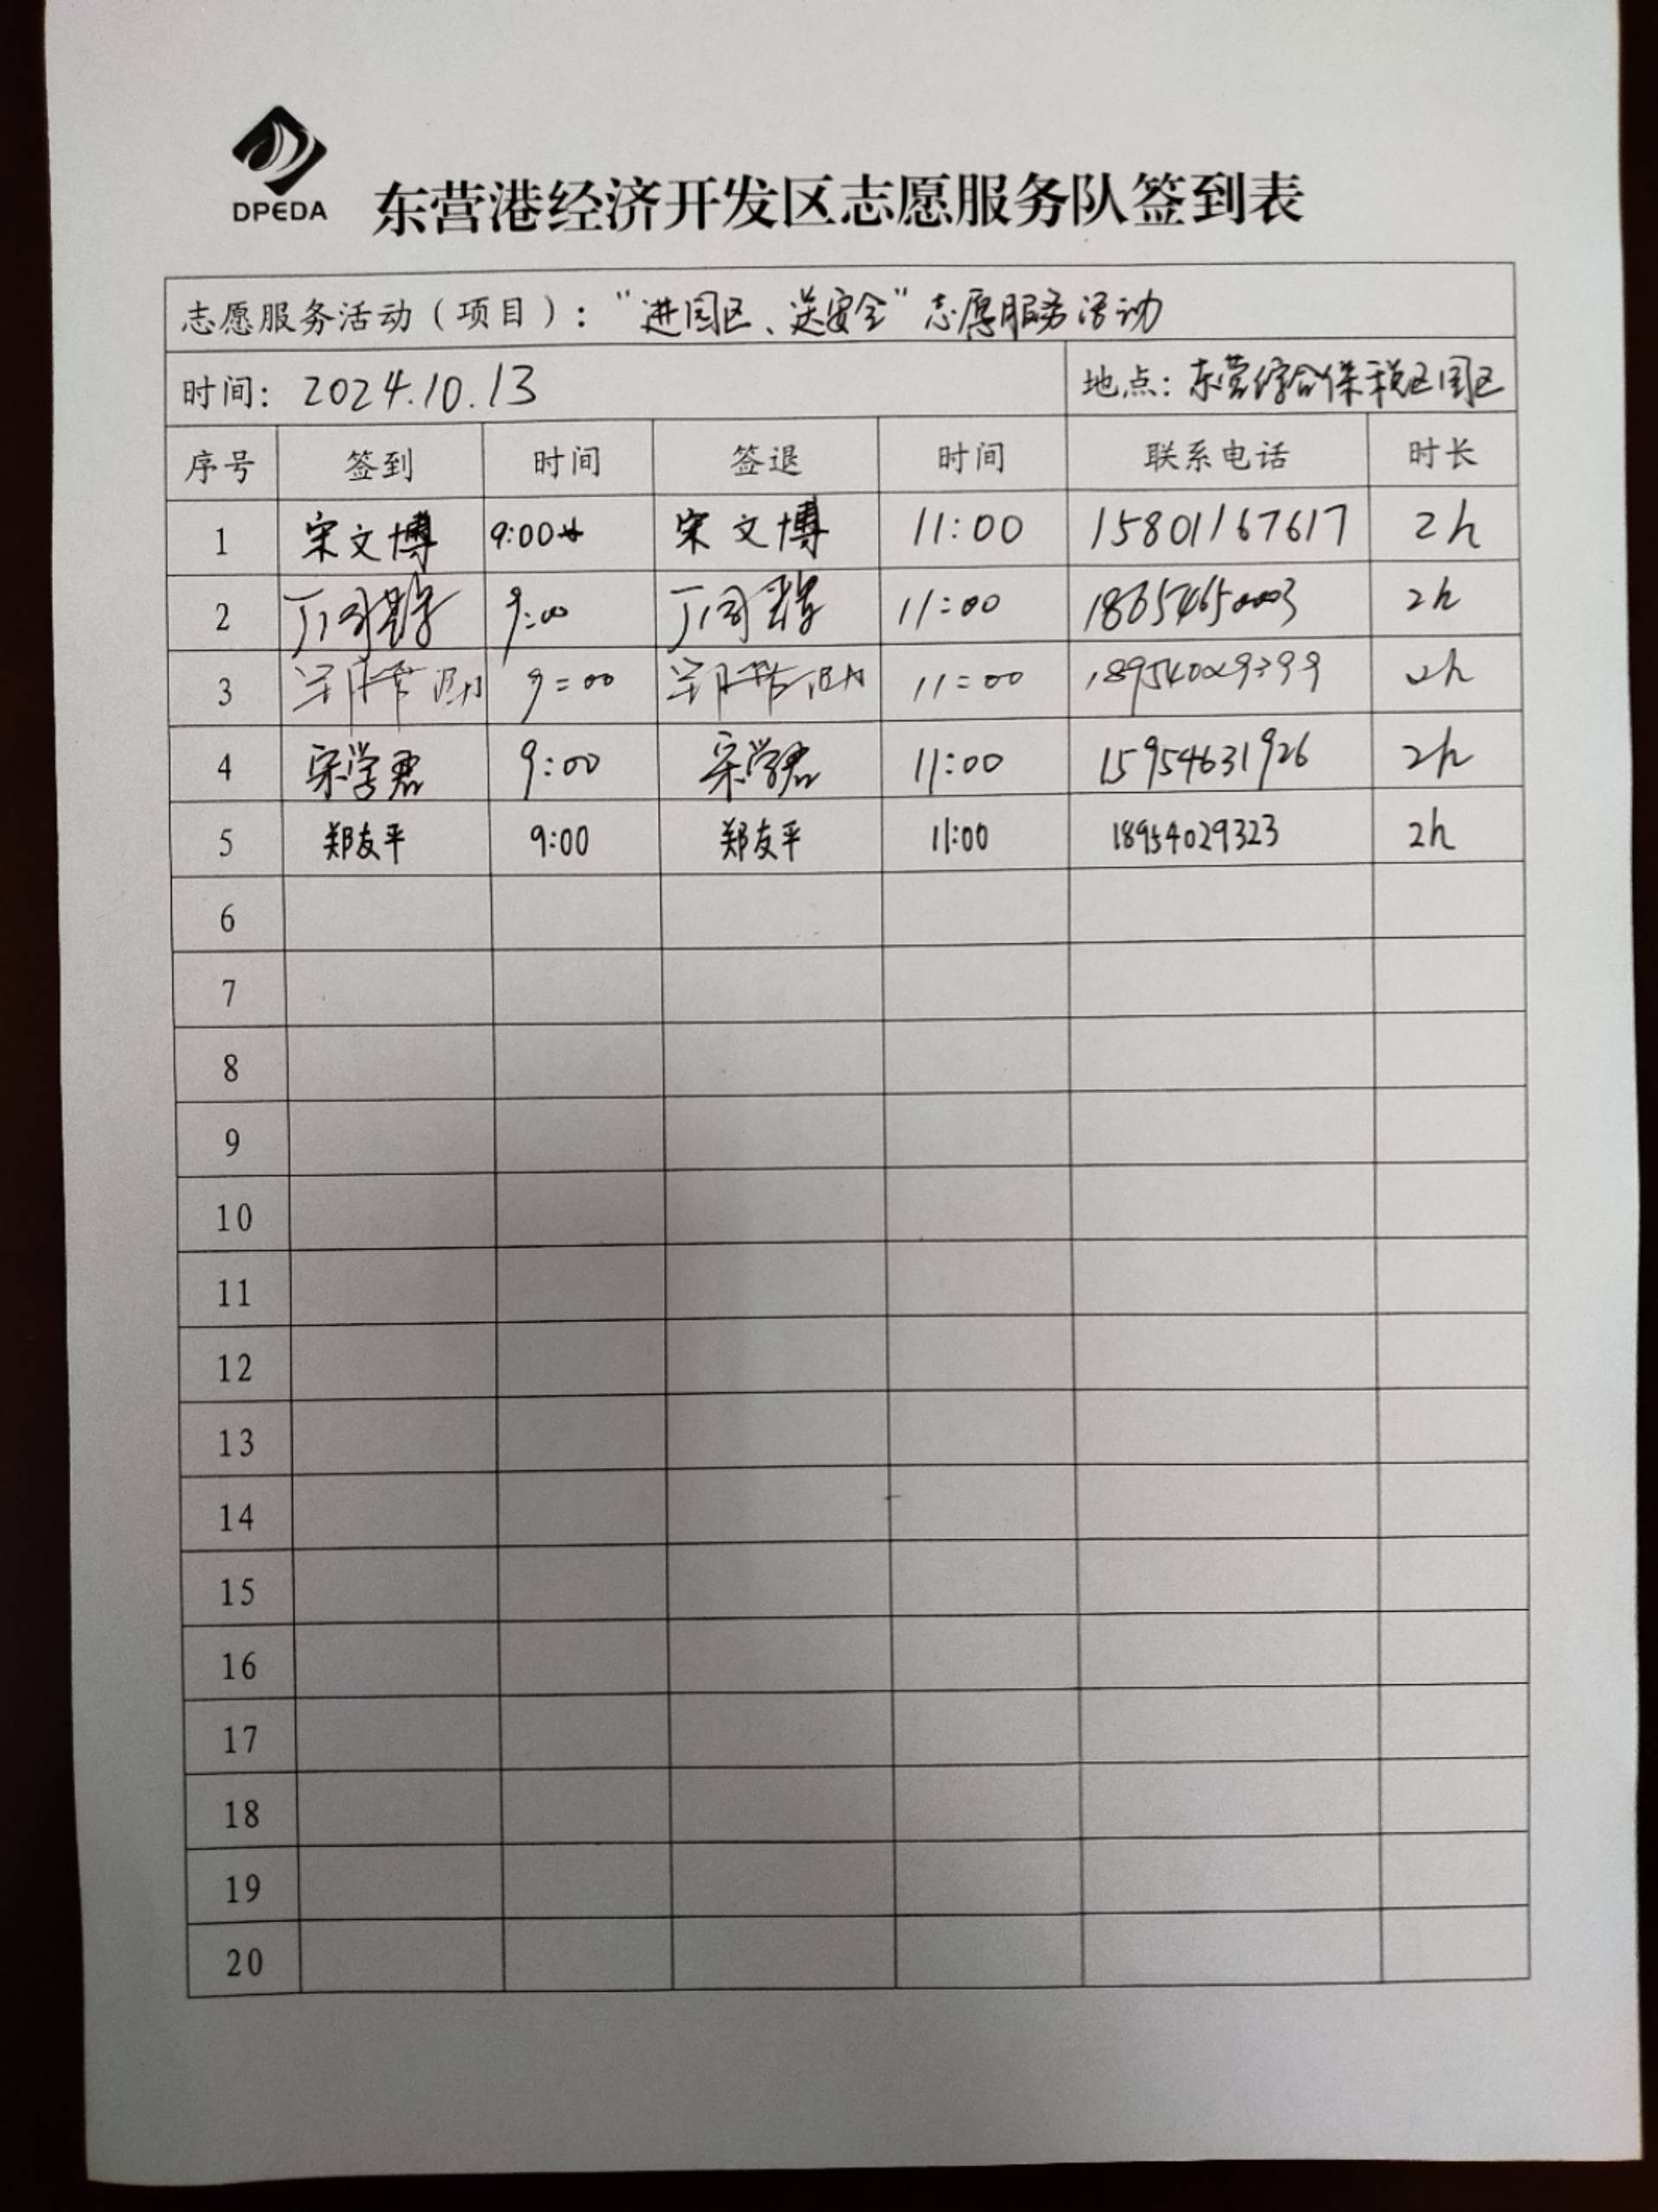 DPEDA
东营港经济开发区志愿服务队签到表
志愿服务活动（项目）：“进园区、送安全”志愿服务活动
时间：2024.10.13 地点：东营综合保税区园区
序号 签到 时间 签退 时间 联系电话 时长
1 宋文博 9:00 宋文博 11:00 15801167617 2h
2 9:00 11:00 2h
3 9:00 11:00 2h
4 宋学君 9:00 宋学君 11:00 15954631926 2h
5 郑友平 9:00 郑友平 11:00 18954029323 2h
6
7
8
9
10
11
12
13
14
15
16
17
18
19
20